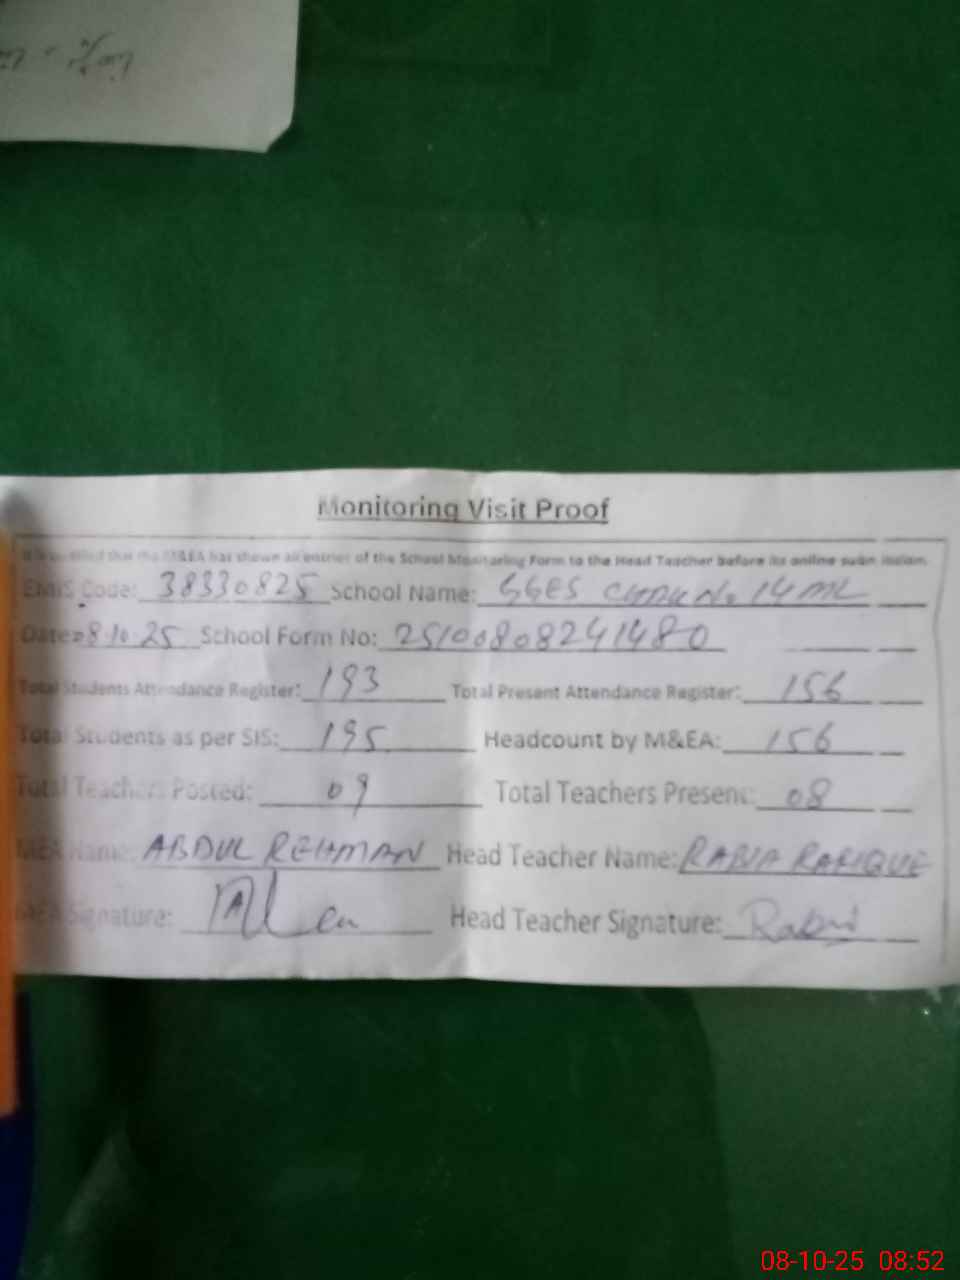 Monitoring Visit Proof
It is certified that the M&EA has shown all entries of the School Monitoring Form to the Head Teacher before its online submission.
EMIS Code: 38330825 School Name: GGES CHAK No. 14 ML
Date: 08.10.25 School Form No: 25100808241480
Total Students Attendance Register: 193 Total Present Attendance Register: 156
Total Students as per SIS: 195 Headcount by M&EA: 156
Total Teachers Posted: 09 Total Teachers Present: 08
MEA Name: ABDUL REHMAN Head Teacher Name: RABIA RAFIQUE
MEA Signature: Head Teacher Signature: Rabia
08-10-25 08:52